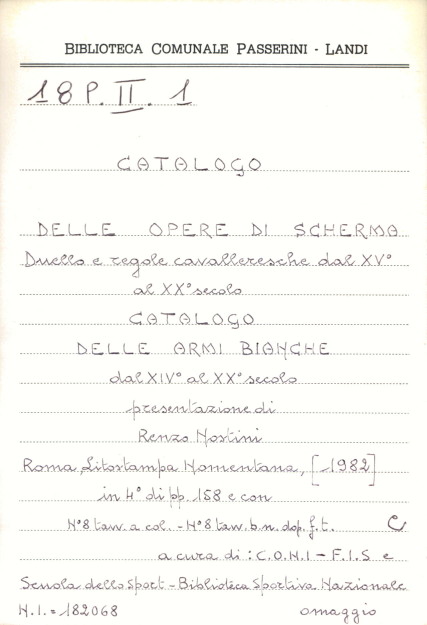 BIBLIOTECA COMUNALE PASSERINI - LANDI
18 P. II. 1
CATALOGO
DELLE OPERE DI SCHERMA
Duello e regole cavalleresche dal XV°
al XX° secolo
CATALOGO
DELLE ARMI BIANCHE
dal XIV° al XX° secolo
presentazione di
Renzo Nostini
Roma, Litostampa Nomentana, [1982]
in 4° di pp. 158 e con
N° 8 tav. a col. - N° 8 tav. b.n. dop. f.t. C
a cura di : C.O.N.I - F.I.S e
Scuola dello Sport - Biblioteca Sportiva Nazionale
N.I. = 182068 omaggio